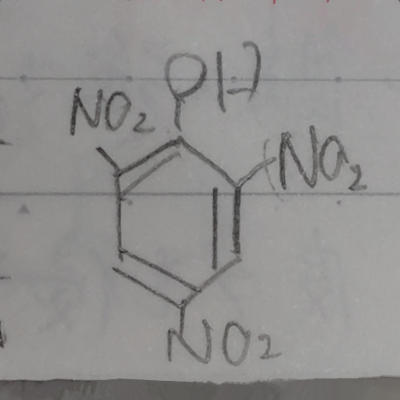 OH
NO2
NO2
NO2